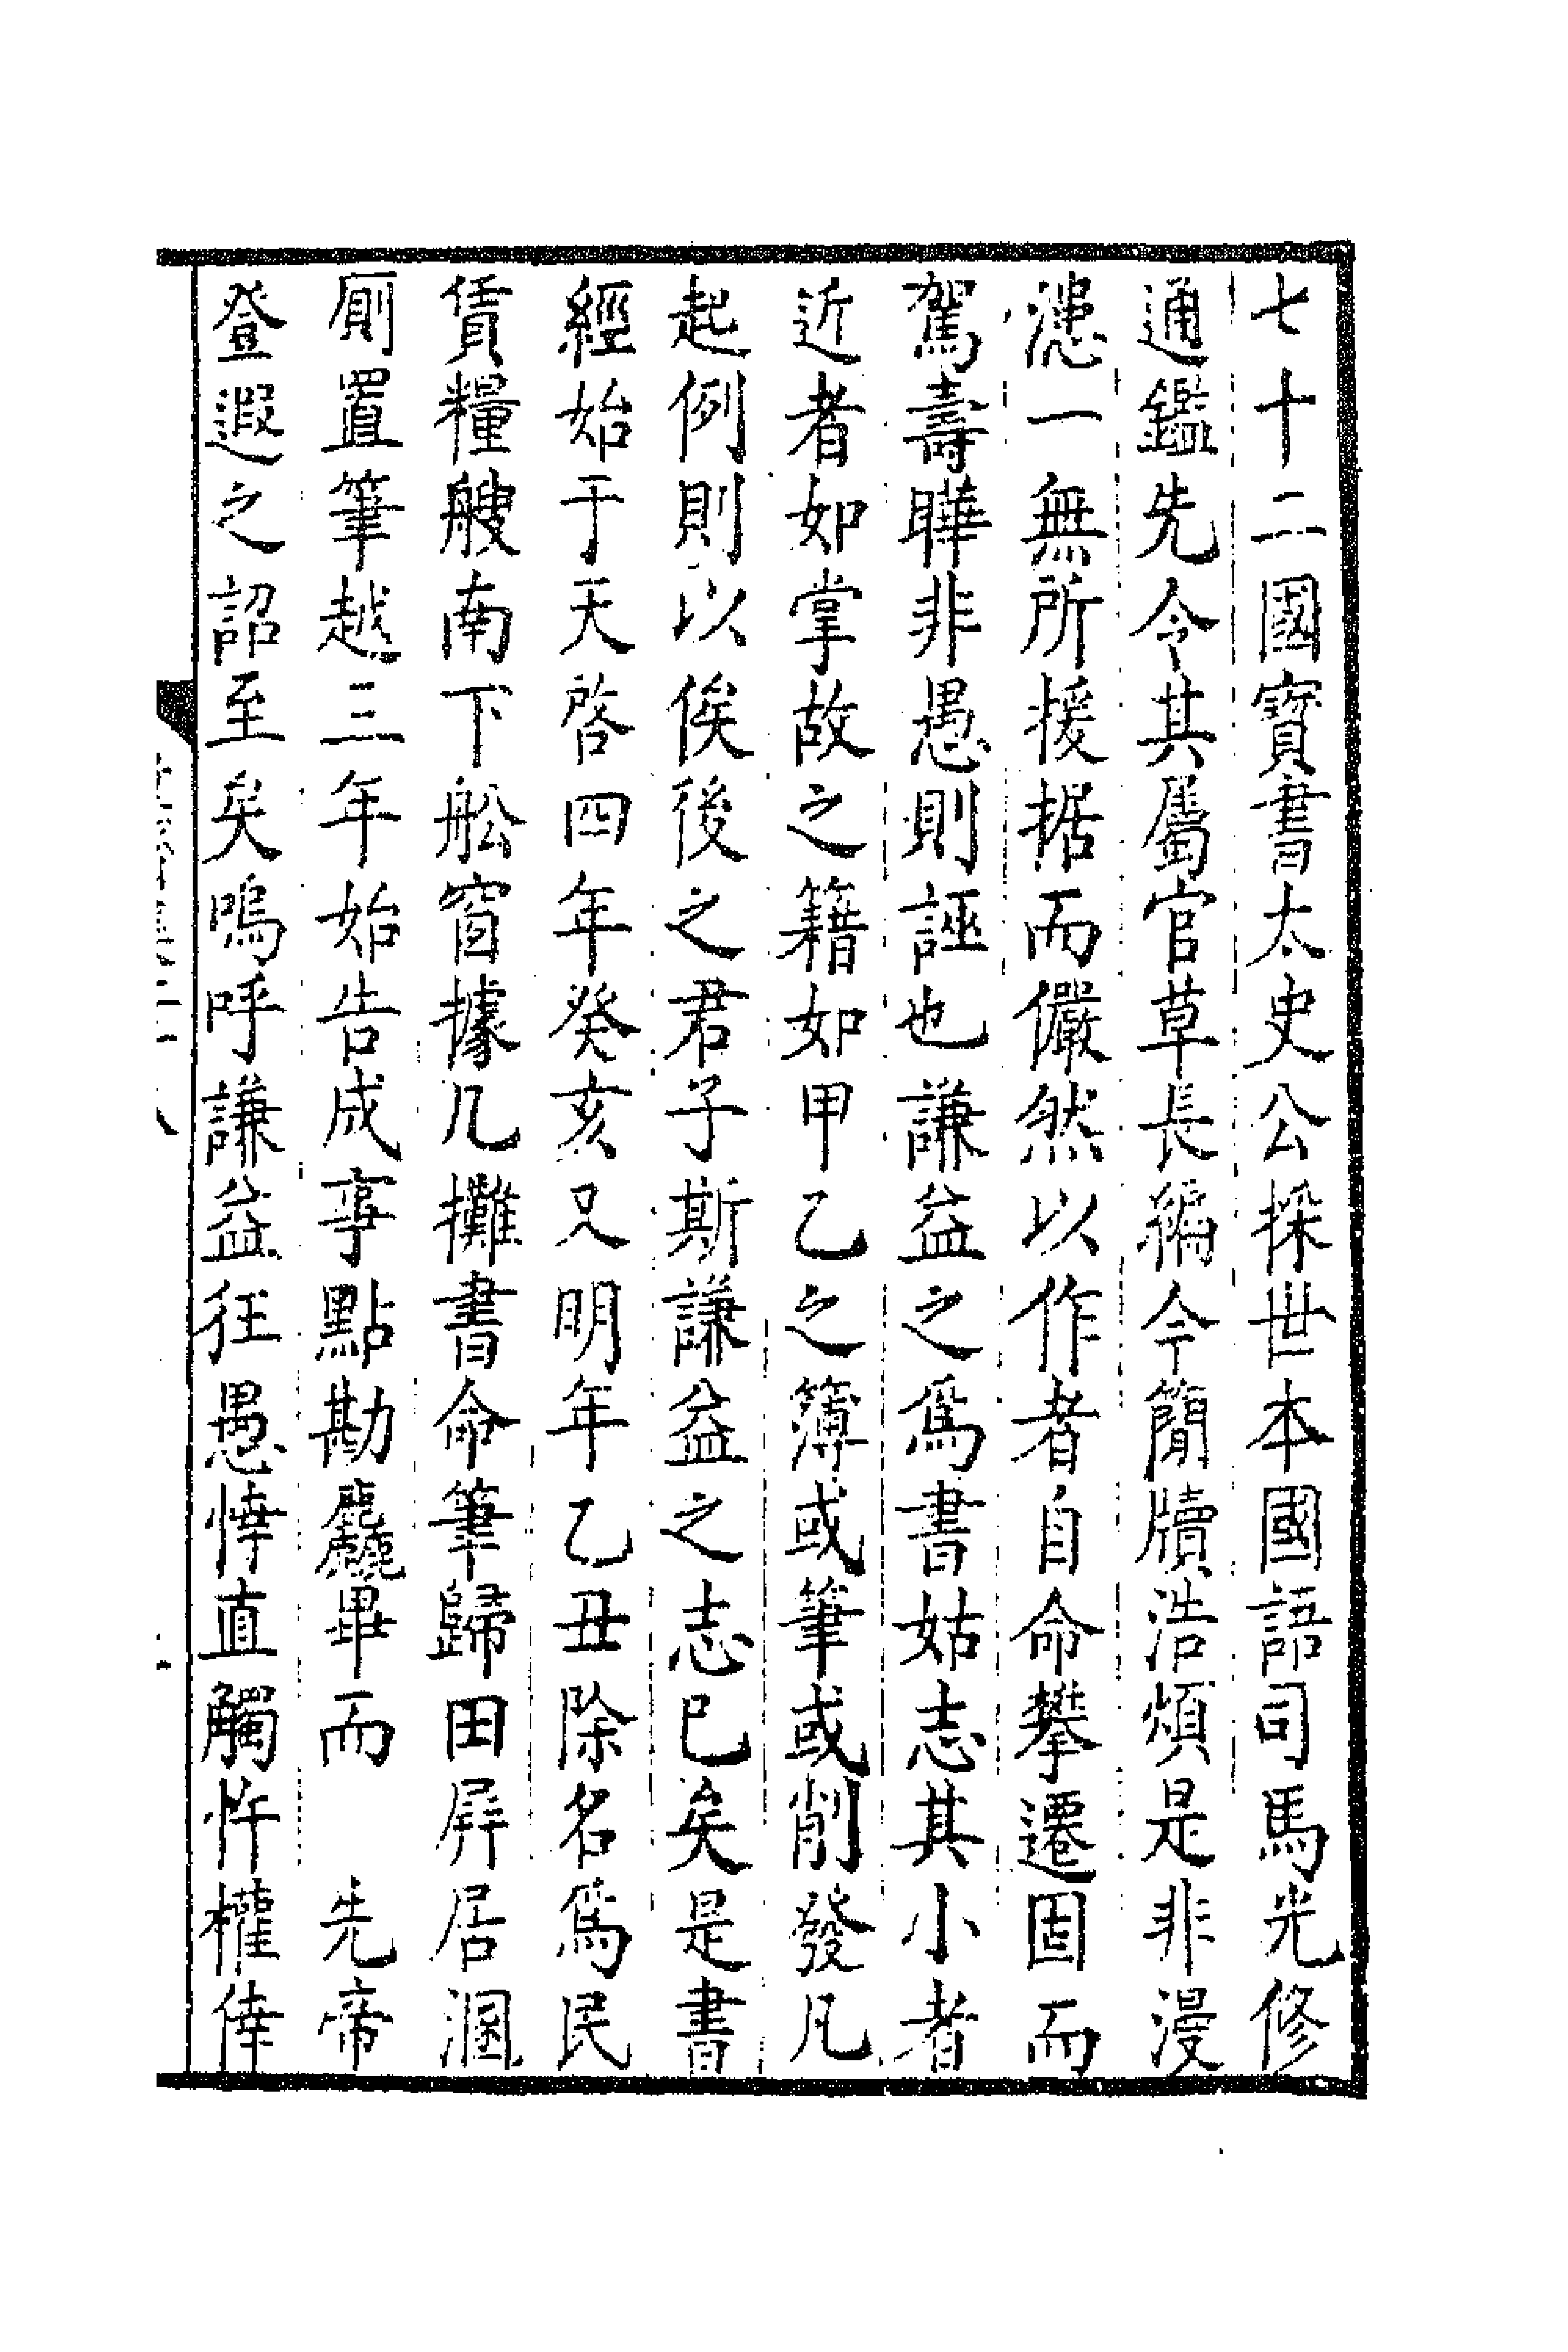 七十二國寶書太史公採世本國語司馬光修
通鑑先令其屬官草長編今簡牘浩煩是非漫
漶一無所援据而儼然以作者自命攀遷固而
駕壽曄非愚則誣也謙益之爲書姑志其小者
近者如掌故之籍如甲乙之簿或筆或削發凡
起例則以俟後之君子斯謙益之志已矣是書
經始于天啓四年癸亥又明年乙丑除名爲民
賃糧艘南下舩窗據几攤書命筆歸田屛居溷
厠置筆越三年始告成事點勘麤畢而　先帝
登遐之詔至矣嗚呼謙益狂愚悻直觸忤權倖